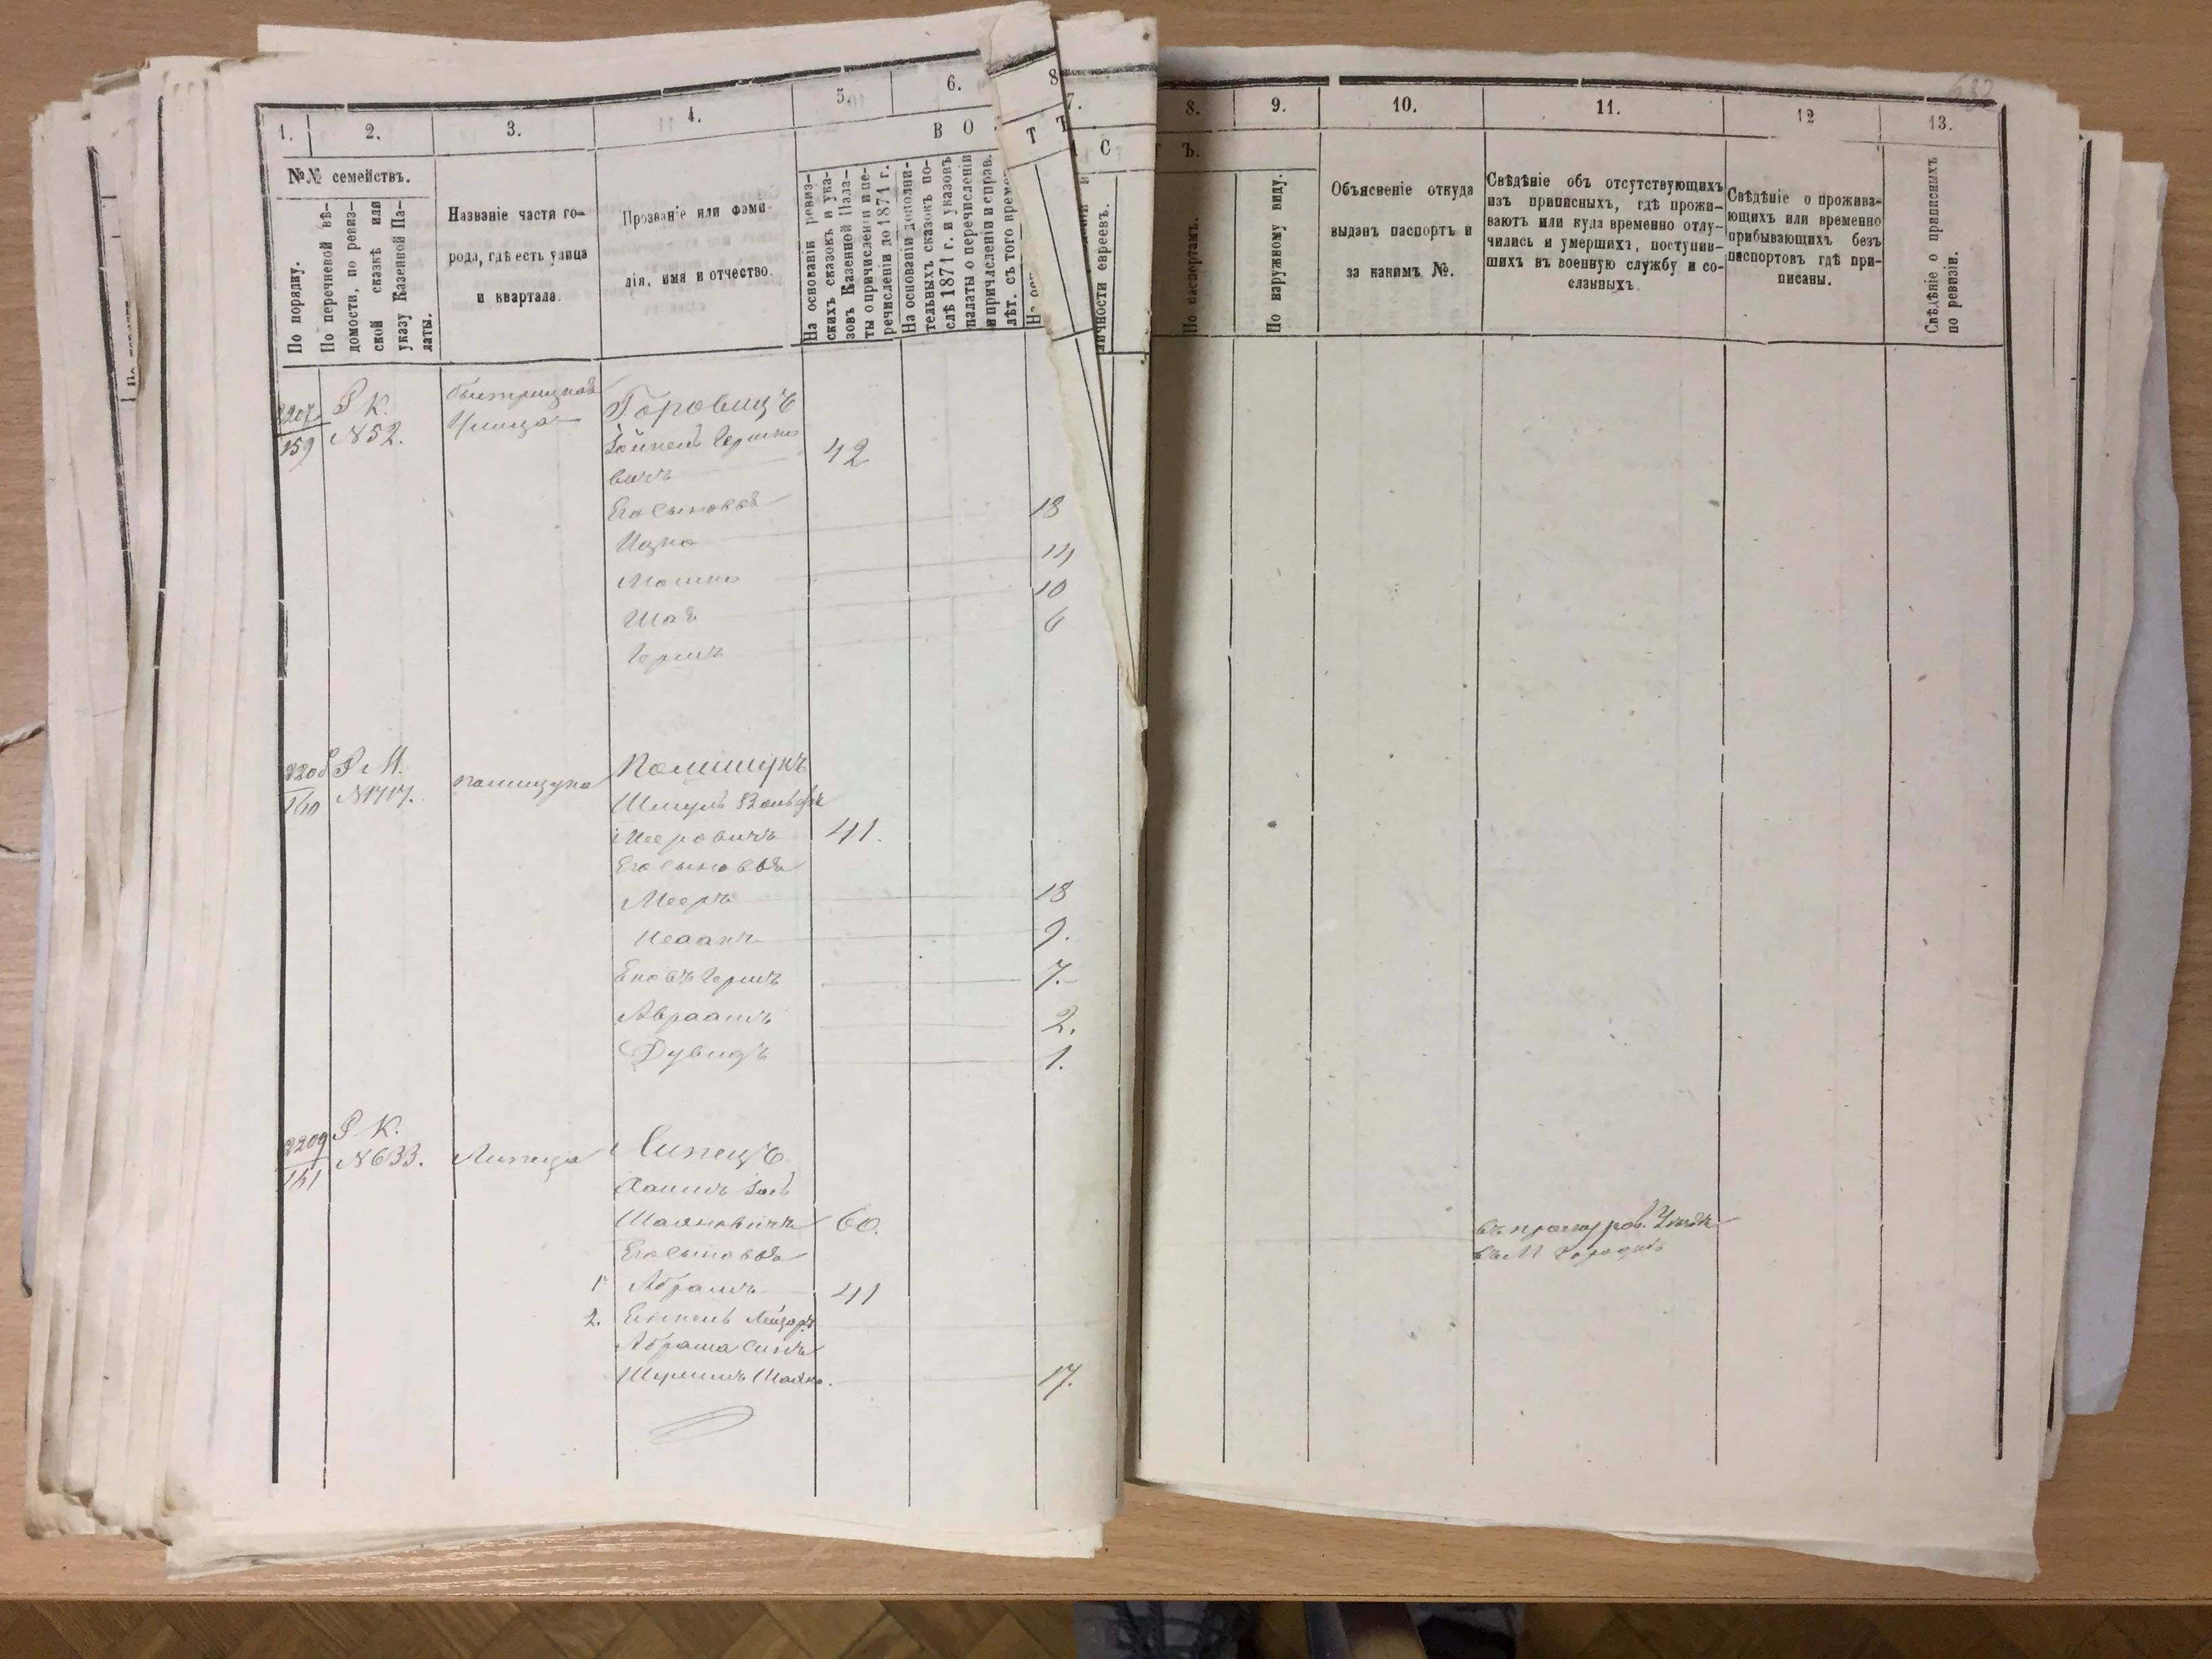 632
1.
2.
3.
4.
5.
6.
8
7.
8.
9.
10.
11.
12
13.
В О
Т Т
С
Т Ъ.
№№ семействъ.
По порядку.
По перечневой вѣ-
домости, по ревиз-
ской сказкѣ или
указу Казенной Па-
латы.
Названіе части го-
рода, гдѣ есть улица
и квартала.
Прозваніе или фами-
лія, имя и отчество.
На основаніи ревиз-
скихъ сказокъ и ука-
зовъ Казенной Пала-
ты о причисленіи и пе-
речисленіи до 1871 г.
На основаніи дополни-
тельныхъ сказокъ по-
слѣ 1871 г. и указовъ
палаты о перечисленіи
и причисленіи и справ.
лѣт. съ того времен
На осн
личности евреевъ.
По паспортамъ.
По наружному виду.
Объясненіе откуда
выданъ паспортъ и
за какимъ №.
Свѣдѣніе объ отсутствующихъ
изъ приписныхъ, гдѣ прожи-
ваютъ или куда временно отлу-
чились и умершихъ, поступив-
шихъ въ военную службу и со-
сланныхъ.
Свѣдѣніе о прожива-
ющихъ или временно
прибывающихъ безъ
паспортовъ гдѣ при-
писаны.
Свѣдѣніе о приписныхъ
по ревизіи.
2207
159
Р К.
N 52.
Улица
Горовицъ
Гершко
вичъ
42
Его сыновья
Ицко
18
Мошко
14
Шая
10
Гершъ
6
2208
160
Р М.
N 1717.
Полищукъ
Шмуль Вольфъ
Мееровичъ
41.
Его сыновья
Мееръ
18
Исаакъ
9.
Гершъ
7.
Авраамъ
2.
Дувидъ
1.
2209
161
Р К.
N 633.
Липеца
Липецъ
Хаимъ
Шаяновичъ
60.
Его сыновья
1
Абрамъ
41
2.
Абрама сынъ
17.